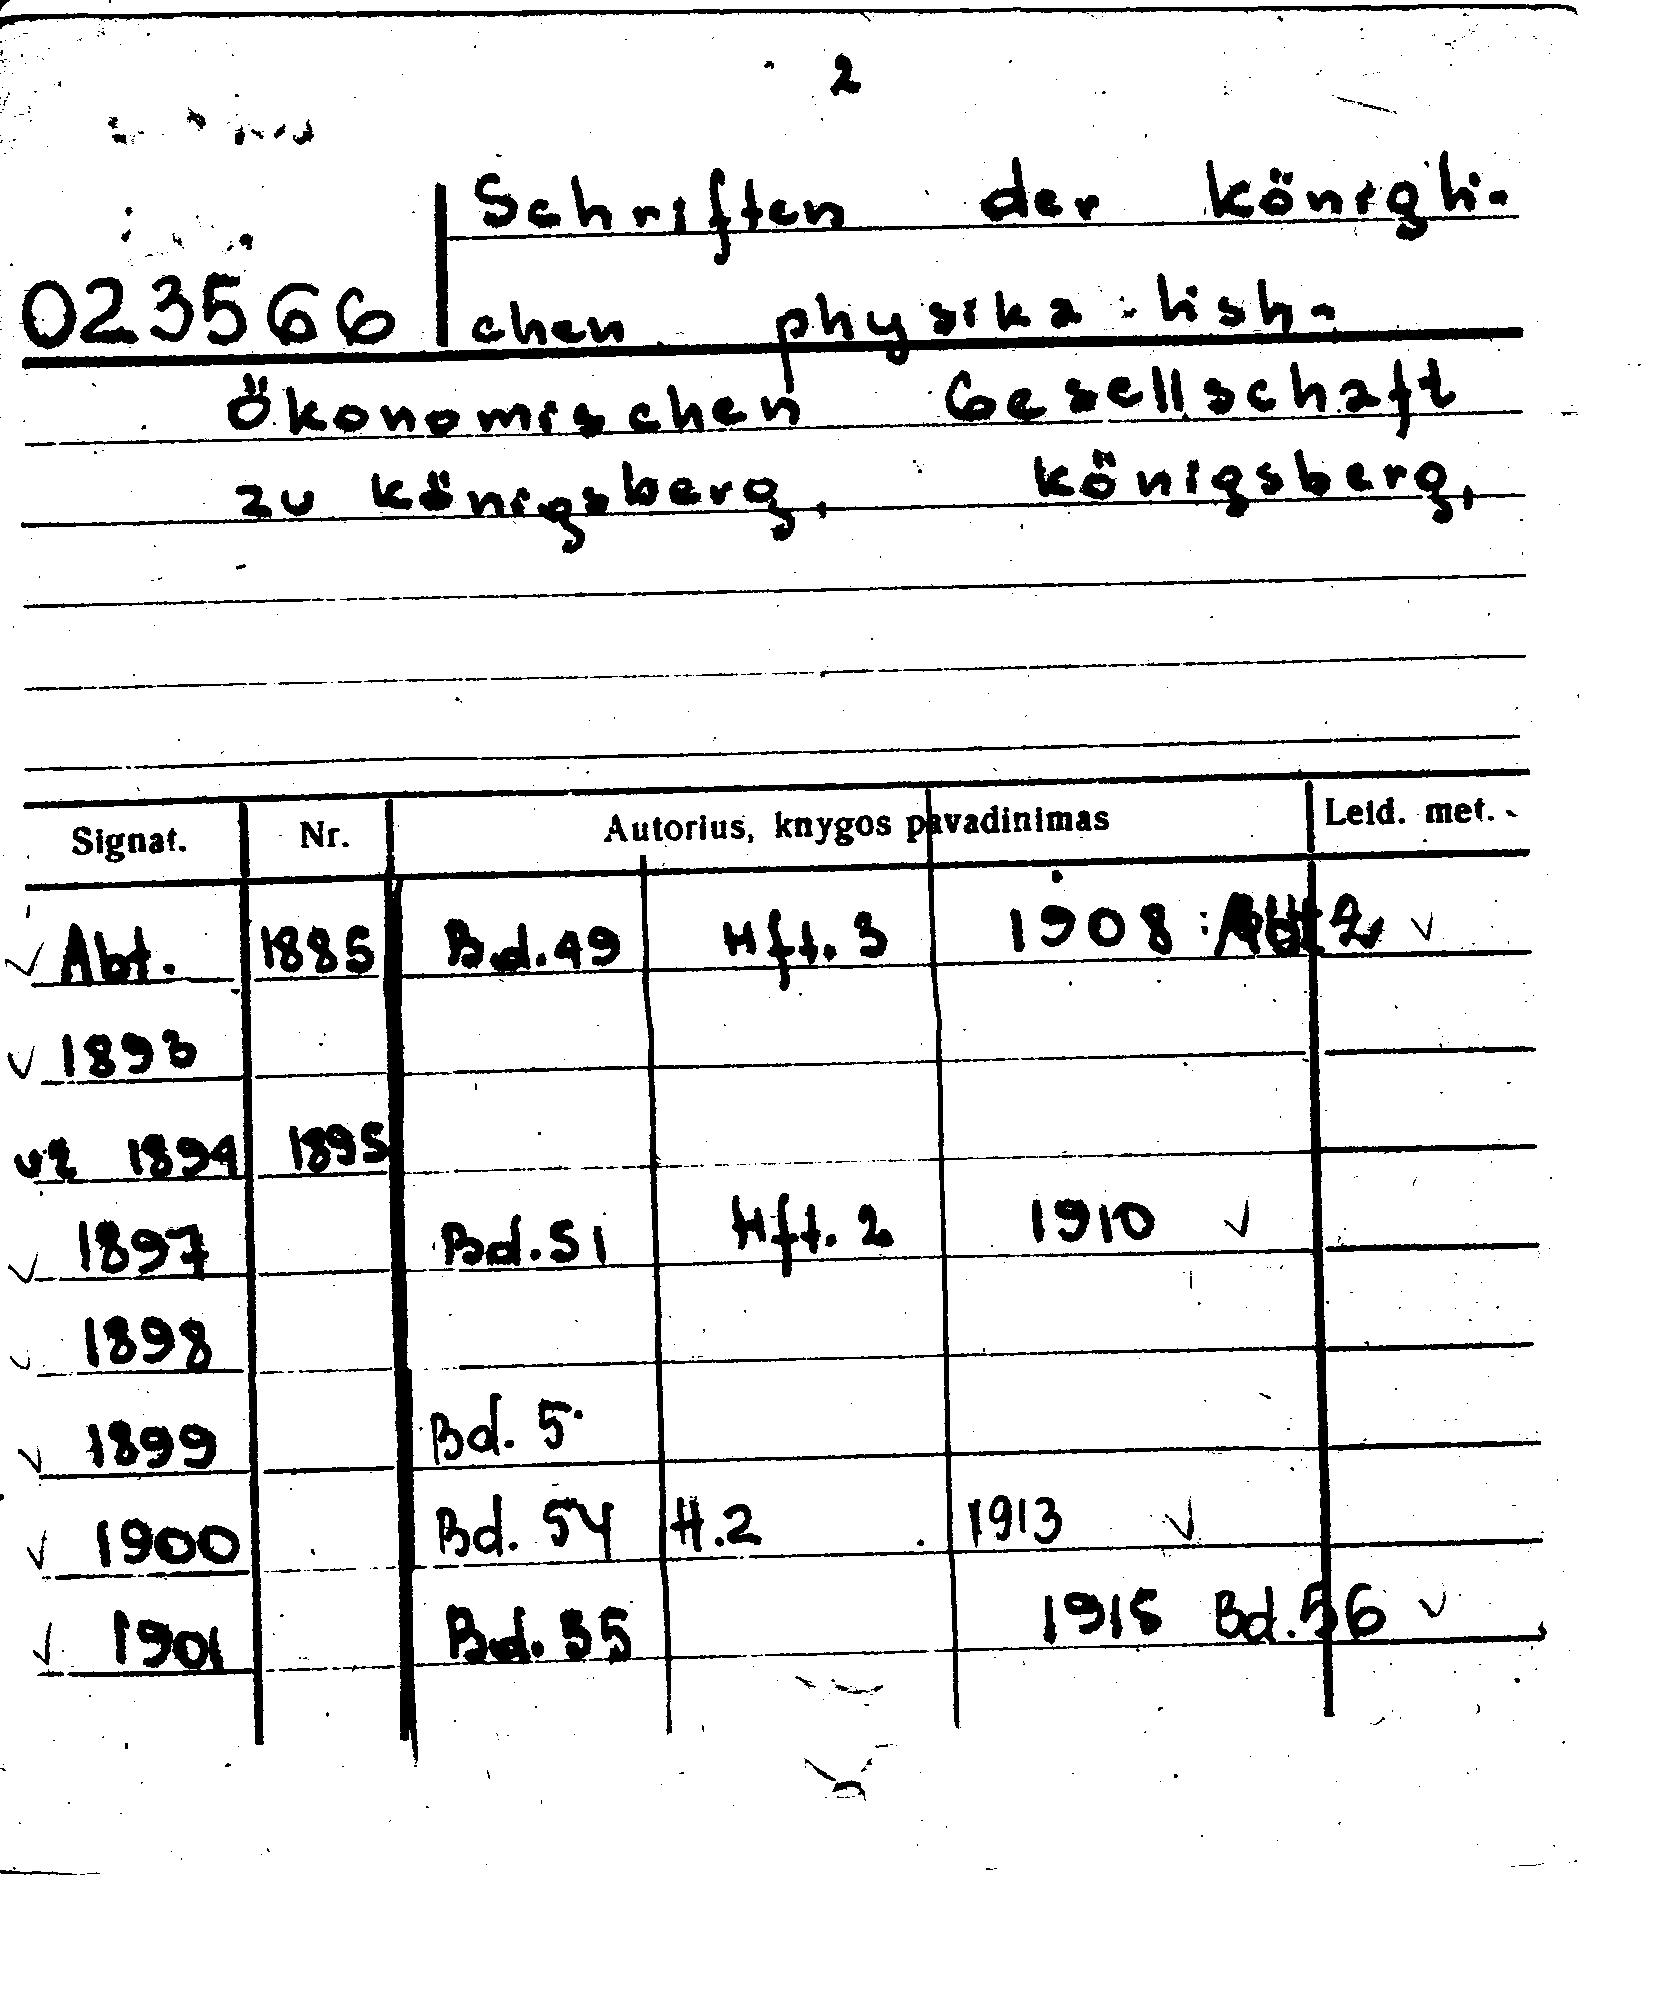 2
Schriften der königli-
023566 chen physika-lish-
ökonomischen Gesellschaft
zu königsberg. königsberg,
Signat. Nr. Autorius, knygos pavadinimas Leid. met.
✓ Abt. 1885 Bd. 49 Hft. 3 1908 : Abt 2 ✓
✓ 1893
1894 1895
✓ 1897 Bd. 51 Hft. 2 1910 ✓
1898
✓ 1899 Bd. 5
✓ 1900 Bd. 54 H.2 1913 ✓
✓ 1901 Bd. 35 1915 Bd. 56 ✓